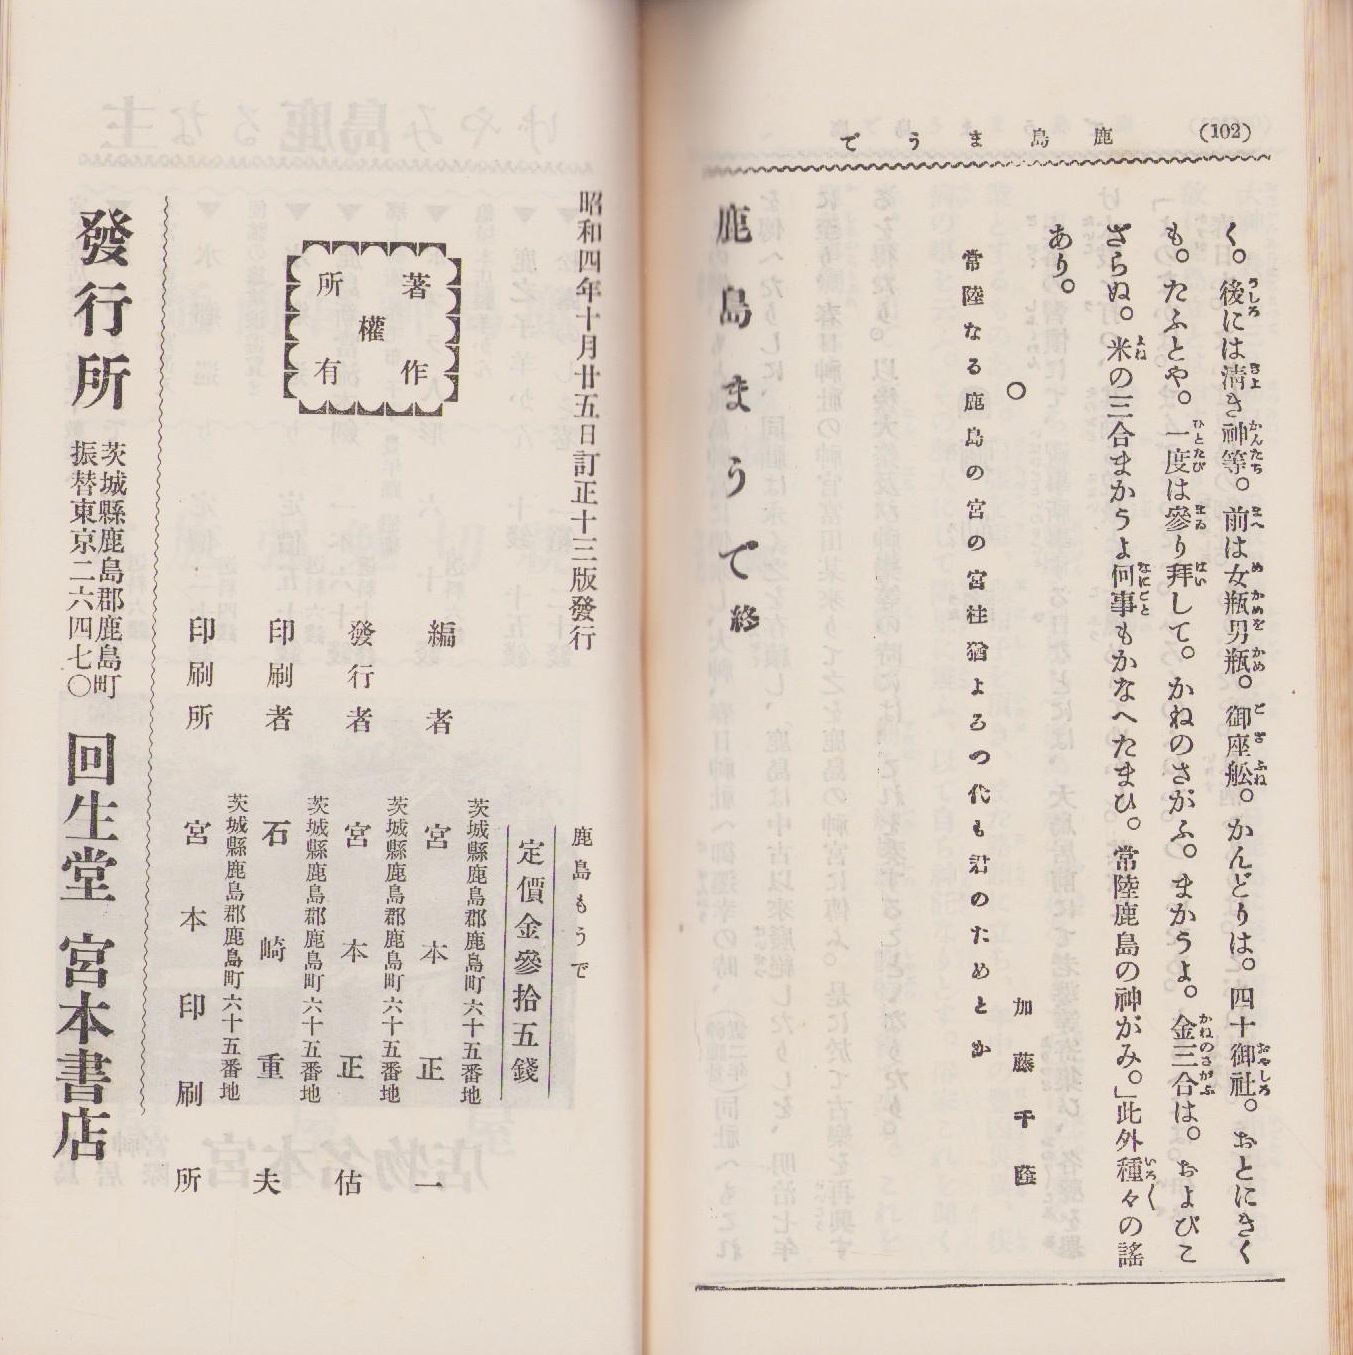 (102)
鹿島まうで
く。後には清き神等。前は女瓶男瓶。御座舩。かんどりは。四十御社。おとにきく
も。たふとや。一度は參り拜して。かねのさがふ。まかうよ。金三合は。およびこ
ざらぬ。米の三合まかうよ何事もかなへたまひ。常陸鹿島の神がみ。」此外種々の謠
あり。
○
加藤千蔭
常陸なる鹿島の宮の宮柱猶よろつ代も君のためとか
鹿島まうで終
昭和四年十月廿五日訂正十三版發行
鹿島もうで
定價金參拾五錢
著作
權
所有
茨城縣鹿島郡鹿島町六十五番地
編者 宮本正一
茨城縣鹿島郡鹿島町六十五番地
發行者 宮本正估
茨城縣鹿島郡鹿島町六十五番地
印刷者 石崎重夫
茨城縣鹿島郡鹿島町六十五番地
印刷所 宮本印刷所
發行所
茨城縣鹿島郡鹿島町
振替東京二六四七〇
回生堂 宮本書店